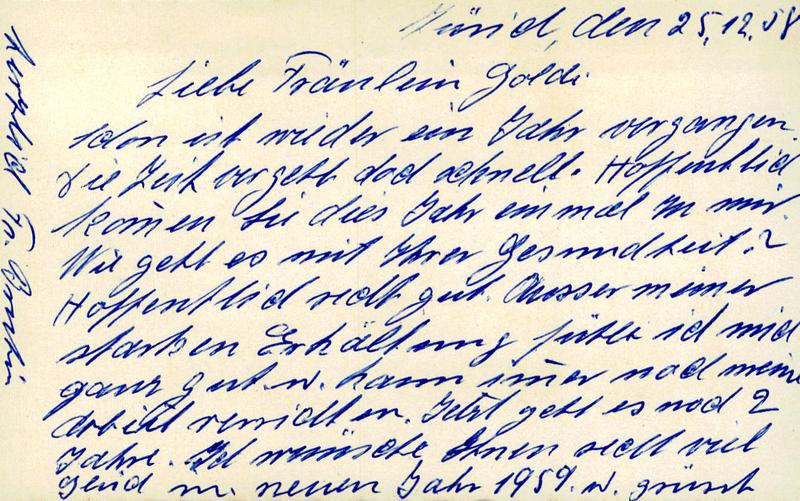 Zürich, den 25.12.58
Liebe Fräulein Goldi
schon ist wieder ein Jahr vergangen.
Die Zeit vergeht doch schnell. Hoffentlich
kom̄en Sie dies Jahr einmal zu mir.
Wie geht es mit Ihrer Gesundheit?
Hoffentlich recht gut. Ausser meiner
starken Erkältung fühle ich mich
ganz gut u. kann im̄er noch meine
Arbeit verrichten. Jetzt geht es noch 2
Jahre. Ich wünsche Ihnen recht viel
z. neuen Jahr 1959. u. grüsst
herzlich Fr.